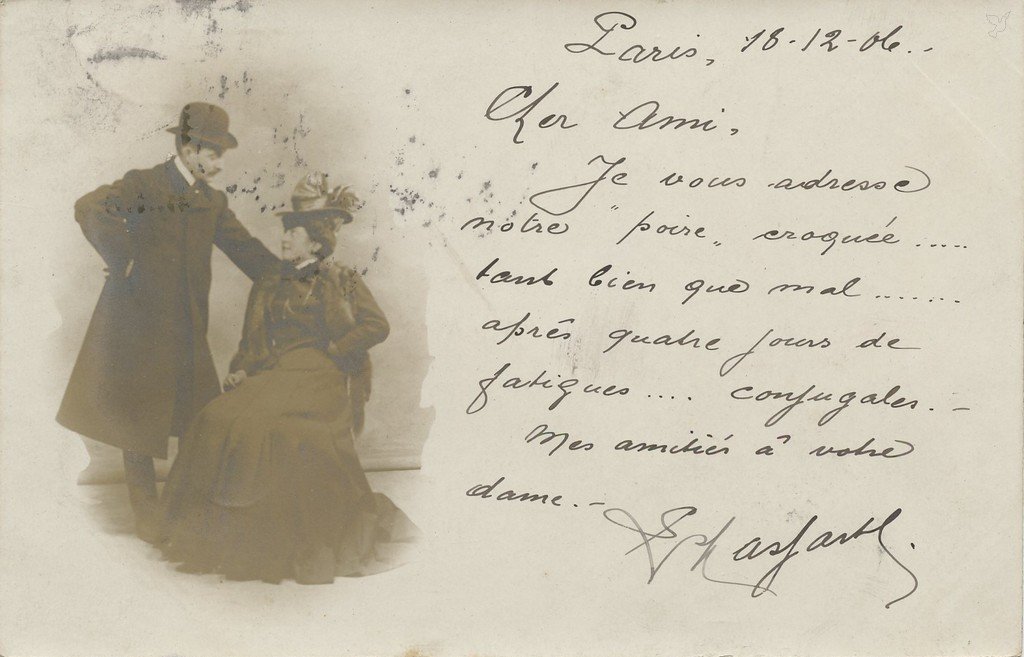 Paris, 18-12-06.-
Cher Ami,
Je vous adresse
notre "poire" croquée .....
tant bien que mal .......
après quatre jours de
fatigues .... conjugales.-
Mes amitiés à votre
dame.-